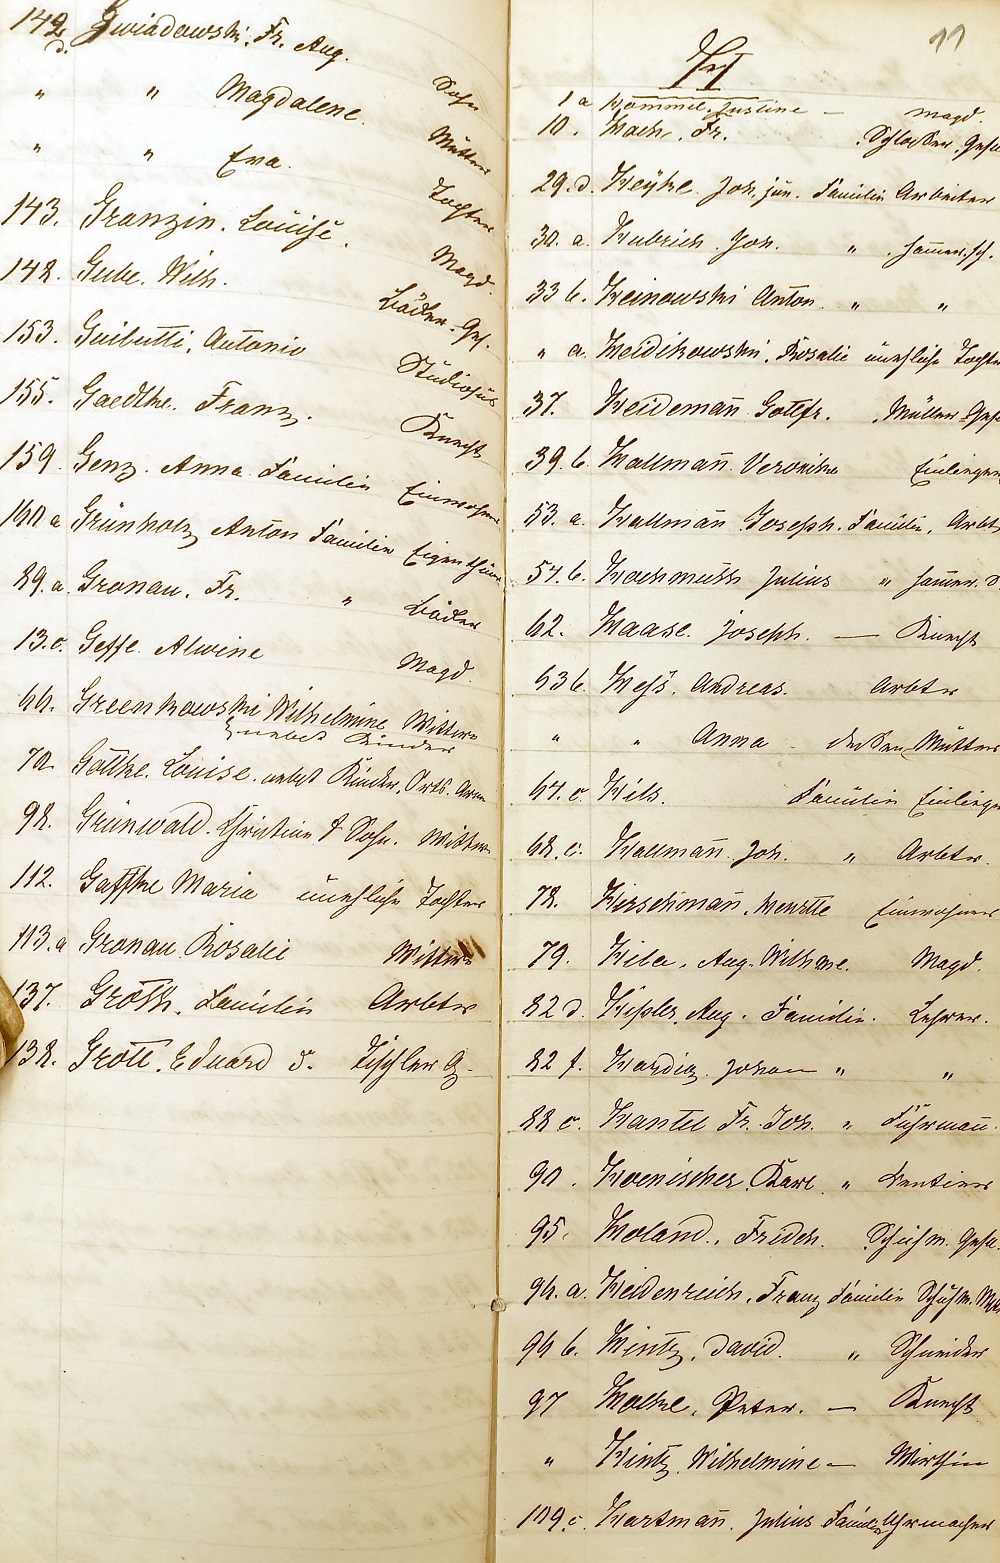 142 d. Gwiadowski, Fr. Aug. Sohn
" " Magdalene. Mutter
" " Eva. Tochter
143. Granzin. Louise. Magd.
148. Gube. Wilh. Bäcker-Ges.
153. Guibutti, Antonio Studiosus
155. Gaedtke. Franz. Knecht
159. Genz. Anna Familie Einwohner
160 a Grünholz Anton Familie Eigenthüm
89. a. Gronau. Fr. " Bäcker
13. c. Gesse. Alwine Magd
66. Greenkowski Wilhelmine Wittwe
nebst Kinder
70. Göttke. Louise. nebst Kinder, Orts. Arme
98. Grünwald. Christine & Sohn. Wittwe
112. Gaffke Maria unehliche Tochter
113. a Gronau. Rosalie Wittwe
137. Groth. Familie Arbeter
138. Grott. Eduard d. Tischler G.
H 11
1 a Hommel. Justine — Magd.
10. Hach. Fr. Schlosser. Gesell
29. d. Heyke. Joh. jun. Familie Arbeiter
30. a. Hubrich. Joh. "
33 b. Heinowski Anton " "
" a. Heidikowski, Rosalie unehliche Tochter
37. Heidemann Gottfr. Müller-Gese
39. b. Hallmann. Veronika Einliegerin
53. a. Hallmann Joseph. Familie. Arbt
54. b. Hachmuth Julius "
62. Haase. Joseph. — Knecht
63 b. Hess. Andreas. Arbtr
" " Anna dessen Mutter
64. c. Hilb. Familie Einlieger
68. c. Hallmann. Joh. " Arbtr.
78. Hirschmann, Einwohner
79. Aug. Wilhme. Magd.
82 d. Hipler, Aug. Familie. Lehrer.
82 f. Hardig. Johan " "
88 c. Hantel Fr. Joh. " Fuhrmann.
90. Hoenischer. Karl " Rentier
95. Holand., Fridch. Schuhm. Gesell.
96. a. Heidenreich, Franz Familie Schuhm. Mstr
96 b. Hintz, David. " Schneider
97 Hälke, Peter. — Knecht
" Hintz Wilhelmine — Wirthin
109 c. Hartmann. Julius Familie Uhrmacher